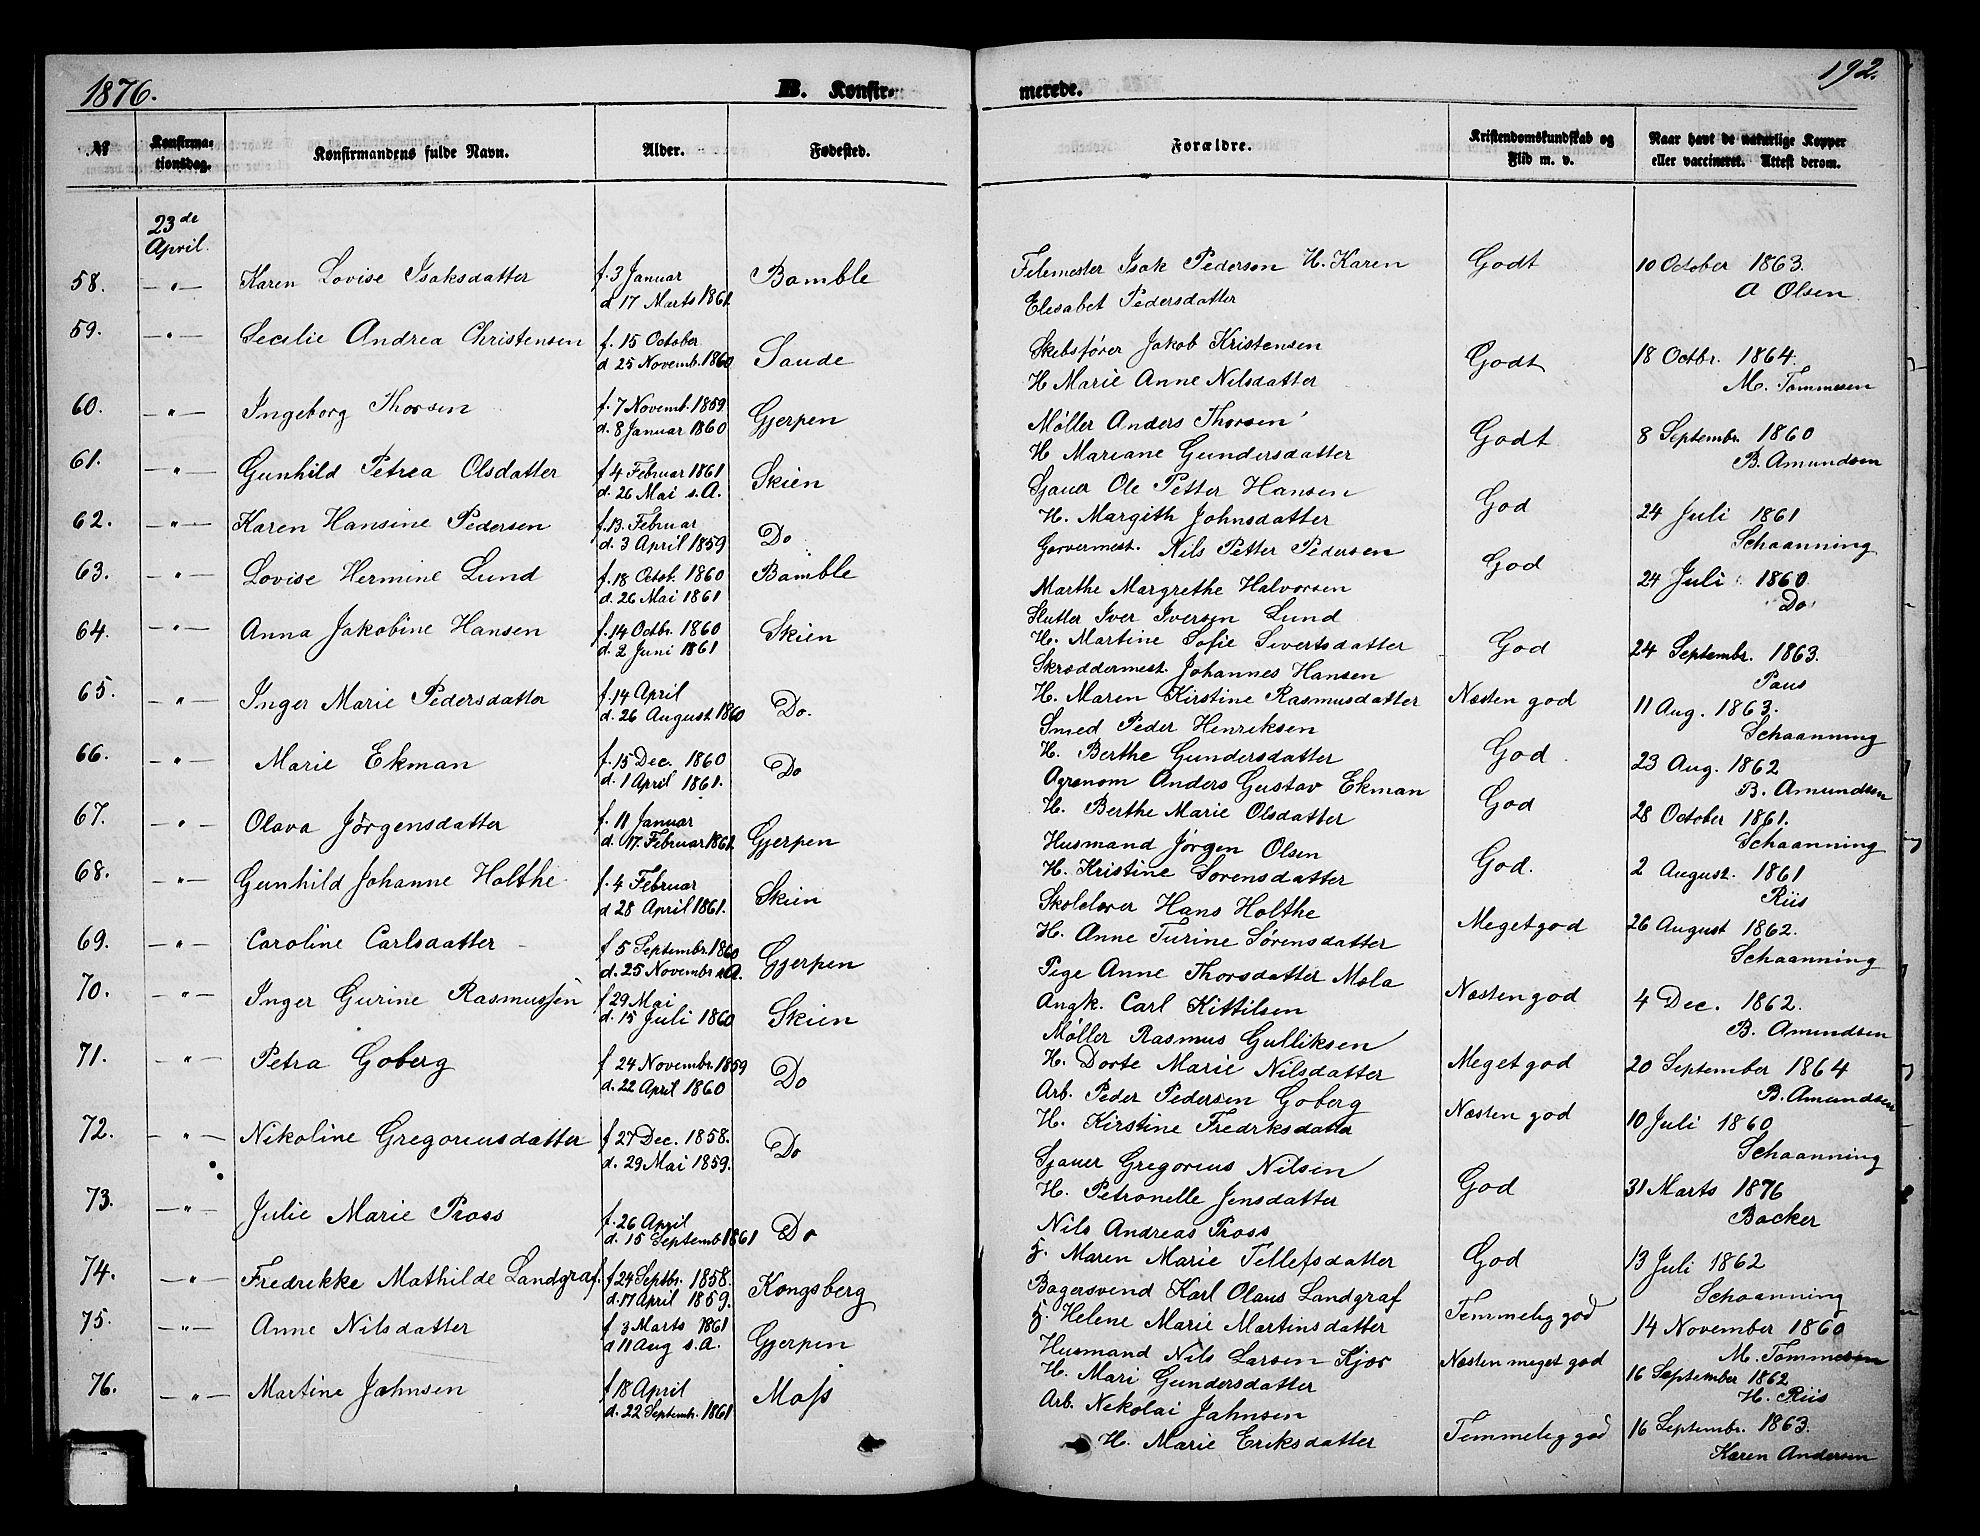 1876.
B. Konfir-
merede.
192.
№
Konfirma-
tionsdag.
Konfirmandens fulde Navn.
Alder.
Fødested.
Forældre.
Kristendomskundskab og
Flid m. v.
Naar havt de naturlige Kopper
eller vaccineret. Attest derom.
23de
April.
58. — " — Karen Lovise Isaksdatter f. 3 Januar
d 17 Marts 1861. Bamble
Filemester Isak Pedersen H. Karen
Elesabet Pedersdatter
Godt
10 October 1863.
A Olsen
59. — " — Secelie Andrea Christensen f. 15 October
d 25 Novemb. 1860 Saude
Skibsfører Jakob Kristensen
H Marie Anne Nilsdatter
Godt
18 Octbr. 1864.
M. Tommesen
60. — " — Ingeborg Thorsen f. 7 Novemb. 1859
d. 8 Januar 1860 Gjerpen
Møller Anders Thorsen
H Mariane Gundersdatter
Godt
8 Septembr 1860
B. Amundsen
61. — " — Gunhild Petrea Olsdatter f 4 Februar 1861
d. 26 Mai s. A. Skien
Sjauer Ole Petter Hansen
H. Margith Johnsdatter
God
24 Juli 1861
Schaanning
62. — " — Karen Hansine Pedersen f. 13 Februar
d. 3 April 1859 Do
Garvermest. Nils Petter Pedersen
Marthe Margrethe Halvorsen
God
24 Juli 1860
Do
63. — " — Lovise Hermine Lund f. 18 Octob. 1860
d. 26 Mai 1861 Bamble
Slutter Iver Iversen Lund
H. Martine Sofie Sivertsdatter
God
24 Septembr. 1863.
Paus
64. — " — Anna Jakobine Hansen f. 14 Octbr. 1860
d. 2 Juni 1861 Skien
Skræddermest. Johannes Hansen
H. Maren Kirstine Rasmusdatter
Næsten god
11 Aug. 1863.
Schaanning
65. — " — Inger Marie Pedersdatter f. 14 April
d. 26 August 1860 Do.
Smed Peder Henriksen
H. Berthe Gundersdatter
God
23 Aug. 1862
B. Amundsen
66. — " — Marie Ekman f. 15 Dec. 1860
d. 1 April 1861. Do
Agronom Anders Gustav Ekman
H. Berthe Marie Olsdatter
God
28 October 1861.
Schaanning
67. — " — Olava Jørgensdatter f. 11 Januar
d. 17. Februar 1861. Gjerpen
Husmand Jørgen Olsen
H. Kristine Sorensdatter
God.
2 August. 1861
Riis
68. — " — Gunhild Johanne Holthe f. 4 Februar
d 28 April 1861. Skien
Skolelærer Hans Holthe
H. Anne Turine Sørensdatter
Meget god
26 August 1862.
Schaanning
69. — " — Caroline Carlsdatter f 5 Septembr. 1860
d. 25 Novembr s. A. Gjerpen
Pige Anne Thorsdatter Mæla
Angk. Carl Kittilsen
Næsten god
4 Dec. 1862.
B. Amundsen
70. — " — Inger Gurine Rasmussen f 29 Mai
d. 15 Juli 1860 Skien
Møller Rasmus Gulliksen
H. Dorte Marie Nilsdatter
Meget god
20 September 1864
B. Amundsen
71. " — Petra Goberg f 24 Novembr. 1859
d. 22 April 1860 Do
Arb. Peder Pedersen Goberg
H. Kirstine Fredriksdatter
Næsten god
10 Juli 1860
Schaanning
72. — " — Nikoline Gregoriusdatter f 27 Dec. 1858.
d. 29 Mai 1859. Do
Sjauer Gregorius Nilsen
H. Petronelle Jensdatter
God
31 Marts 1876
Backer
73. — " — Julie Marie Pross f. 26 April
d. 15 Septemb 1861 Do
Nils Andreas Pross
H. Maren Marie Tellefsdatter
God
13 Juli 1862
Schaanning
74. — " — Fredrikke Mathilde Landgraf. f 24 Septbr. 1858.
d. 17 April 1859. Kongsberg
Bagersvend Karl Olaus Landgraf
H. Helene Marie Martinsdatter
Temmelig god
14 November 1860
M. Tommesen
75. — " — Anne Nilsdatter f 3 Marts 1861
d 11 Aug s. A. Gjerpen
Husmand Nils Larsen Kjær
H. Mari Gundersdatter
Næsten meget god
16 September 1862
H. Riis
76. — " — Martine Jahnsen f 18 April
d. 22 Septembr. 1861 Moss
Arb. Nekolai Jahnsen
H. Marie Eriksdatter
Temmelig god
16 Septembr. 1863.
Karen Andersen